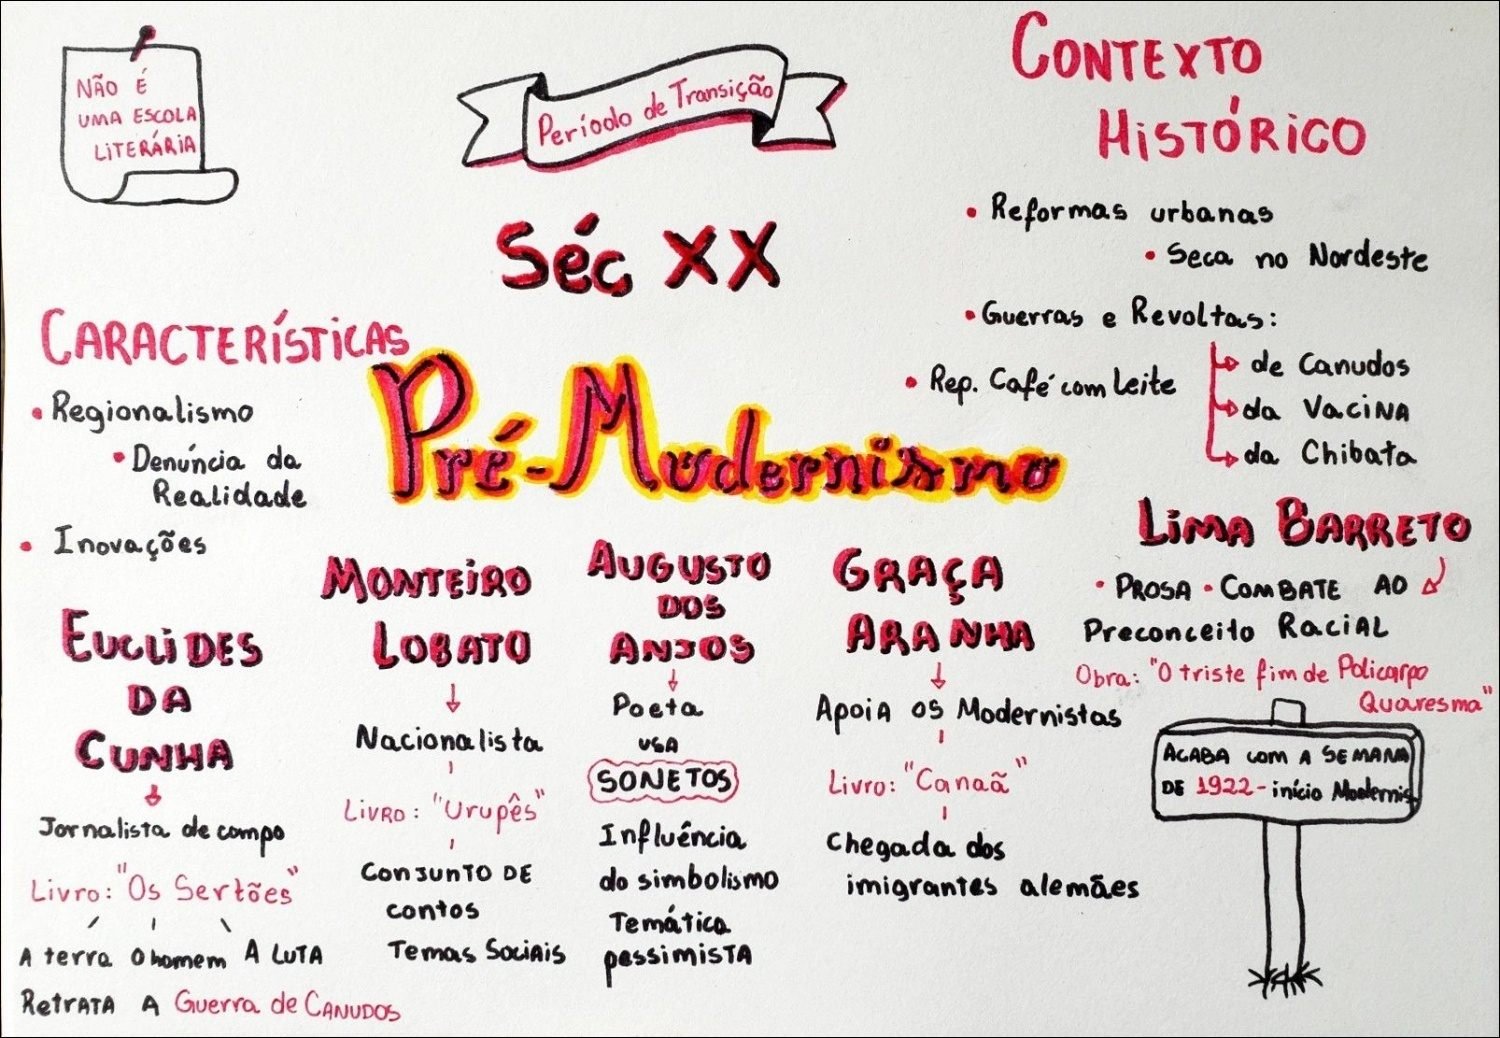 NÃO É
UMA ESCOLA
LITERÁRIA
Período de Transição
Séc XX
Pré-Modernismo
CONTEXTO
HISTÓRICO
• Reformas urbanas
• Seca no Nordeste
• Guerras e Revoltas:
de Canudos
da VACINA
da Chibata
• Rep. Café com Leite
CARACTERÍSTICAS
• Regionalismo
• Denúncia da
Realidade
• Inovações
EUCLIDES
DA
CUNHA
Jornalista de campo
Livro: "Os Sertões"
A terra O homem A LUTA
RETRATA A Guerra de CANUDOS
MONTEIRO
LOBATO
Nacionalista
LIVRO: "Urupês"
CONJUNTO DE
contos
Temas Sociais
AUGUSTO
DOS
ANJOS
Poeta
USA
SONETOS
Influência
do simbolismo
Temática
pessimista
GRAÇA
ARANHA
Apoia os Modernistas
Livro: "Canaã"
Chegada dos
imigrantes alemães
LIMA BARRETO
• PROSA • COMBATE AO
Preconceito RACIAL
Obra: "O triste fim de Policarpo
Quaresma"
ACABA com A SEMANA
DE 1922 - início Modernis